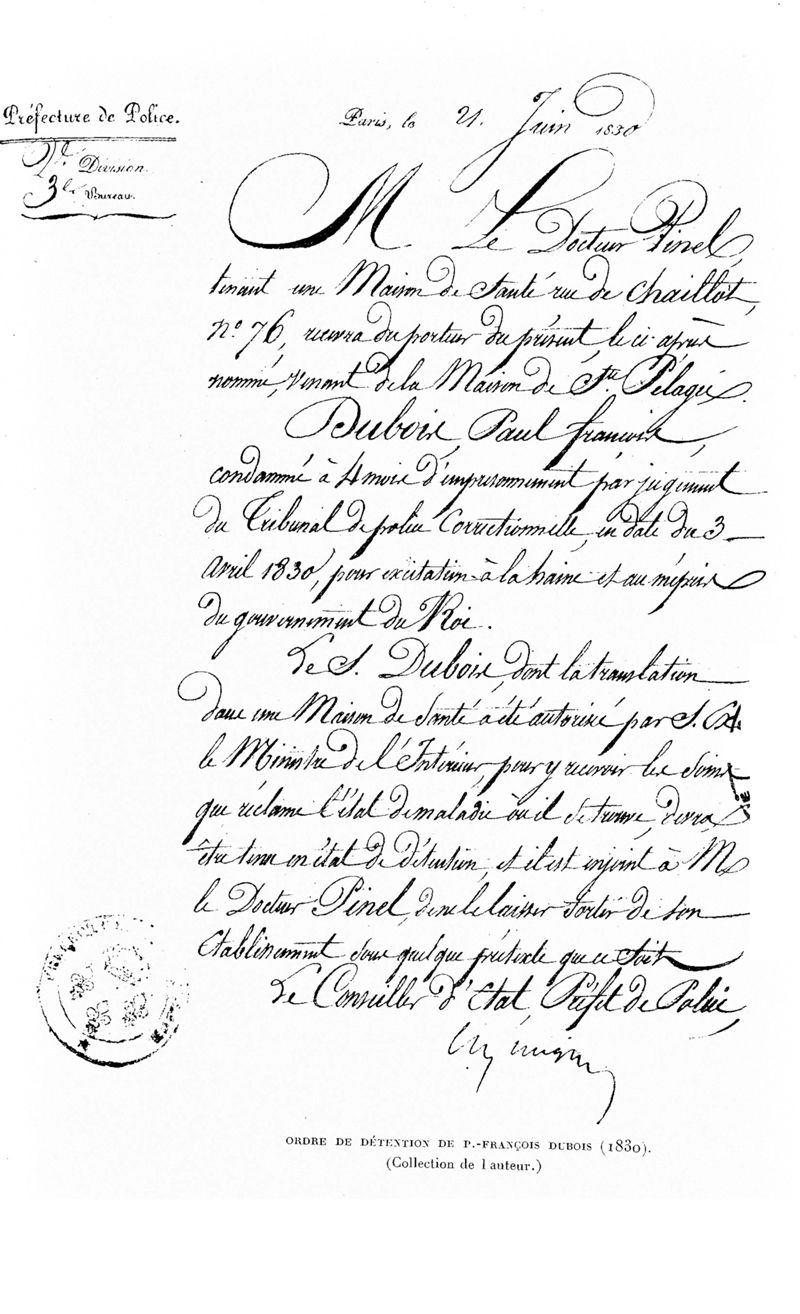 Préfecture de Police.
2e. Division.
3e. Bureau.
Paris, le 21. Juin 1830
M Le Docteur Pinel,
tenant une Maison de Santé rue de Chaillot,
n.o 76, recevra du porteur du présent, le ci après
nommé, venant de la Maison de Ste. Pélagie.
Dubois, Paul françois,
condamné à 4 mois d'emprisonnement par jugement
du Tribunal de police Correctionnelle, en date du 3
avril 1830, pour excitation à la haine et au mépris
du gouvernement du Roi.
Le S. Dubois, dont la translation
dans une Maison de Santé a été autorisée par S. Ex.
le Ministre de l'Intérieur, pour y recevoir les Soins
que réclame l'état de maladie où il se trouve, devra
être tenu en état de détention, et il est enjoint à M
le Docteur Pinel, de ne le laisser sortir de son
établissement sous quelque prétexte que ce soit
Le Conseiller d'Etat, Préfet de Police,
ORDRE DE DÉTENTION DE P.-FRANÇOIS DUBOIS (1830).
(Collection de l auteur.)